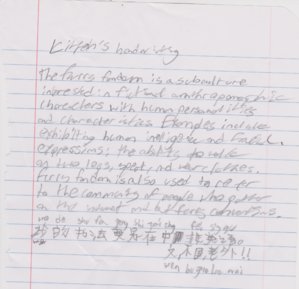 Kitteh's handwriting
The furry fandom is a subculture
interested in fictional anthropomorphic
characters with human personalities
and characteristics. Examples include
exhibiting human intelligence and facial
expressions, the ability to walk
on two legs, speak, and wear clothes.
Furry fandom is also used to refer
to the community of people who gather
on the internet and at furry conventions.
wo de shu fa
我的书法
又不是老外!!